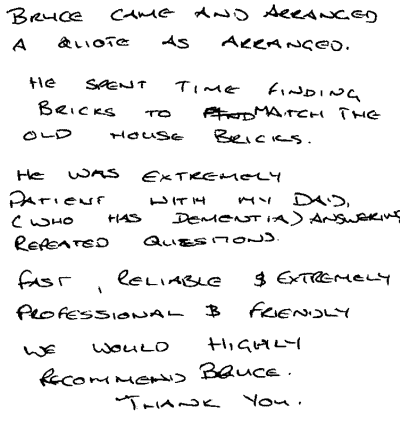 BRUCE CAME AND ARRANGED
A QUOTE AS ARRANGED.
HE SPENT TIME FINDING
BRICKS TO MATCH THE
OLD HOUSE BRICKS.
HE WAS EXTREMELY
PATIENT WITH MY DAD,
(WHO HAS DEMENTIA) ANSWERING
REPEATED QUESTIONS.
FAST, RELIABLE & EXTREMELY
PROFESSIONAL & FRIENDLY
WE WOULD HIGHLY
RECOMMEND BRUCE.
THANK YOU.